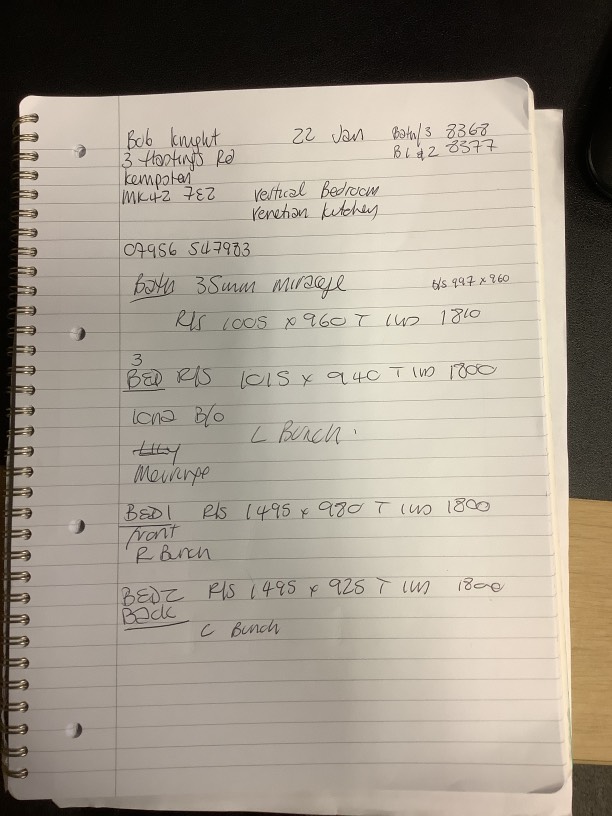 Bob Knight 22 Jan Bath/3 8368
3 Hastings Rd B1 & 2 8377
Kempston
MK42 7EZ Vertical Bedroom
Venetian Kitchen
07956 547983
Bath 35mm mirage b/s 997 x 960
R/S 1005 x 960 T 1810
3
BED R/S 1015 x 940 T 1800
B/O
L Bunch.
BED1 R/S 1495 x 980 T 1800
front
R Bunch
BED2 R/S 1495 x 925 T 1800
Back
C Bunch